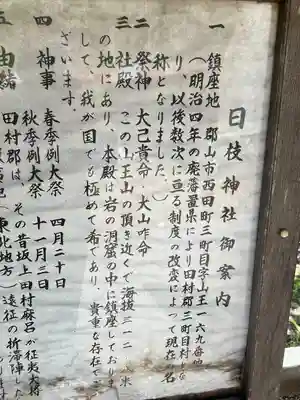 日枝神社御案内
一 鎮座地 郡山市西田町三町目字山王一六九番地
(明治四年の廃藩置県により田村郡三町目村とな
り、以後数次に亘る制度の改変によって現在の名
称となりました。)
二 祭神 大己貴命・大山咋命
三 社殿 この山王山の頂き近くで海抜三一二、米
の地にあり、本殿は岩の洞窟の中に鎮座しておりま
して、我が国でも極めて希であり、貴重な存在でご
ざいます。
四 神事 春季例大祭 四月二十日
秋季例大祭 十一月三日
五 由緒 田村郡は、その昔坂上田村麻呂が征夷大将
(東北地方)遠征の折滞陣した